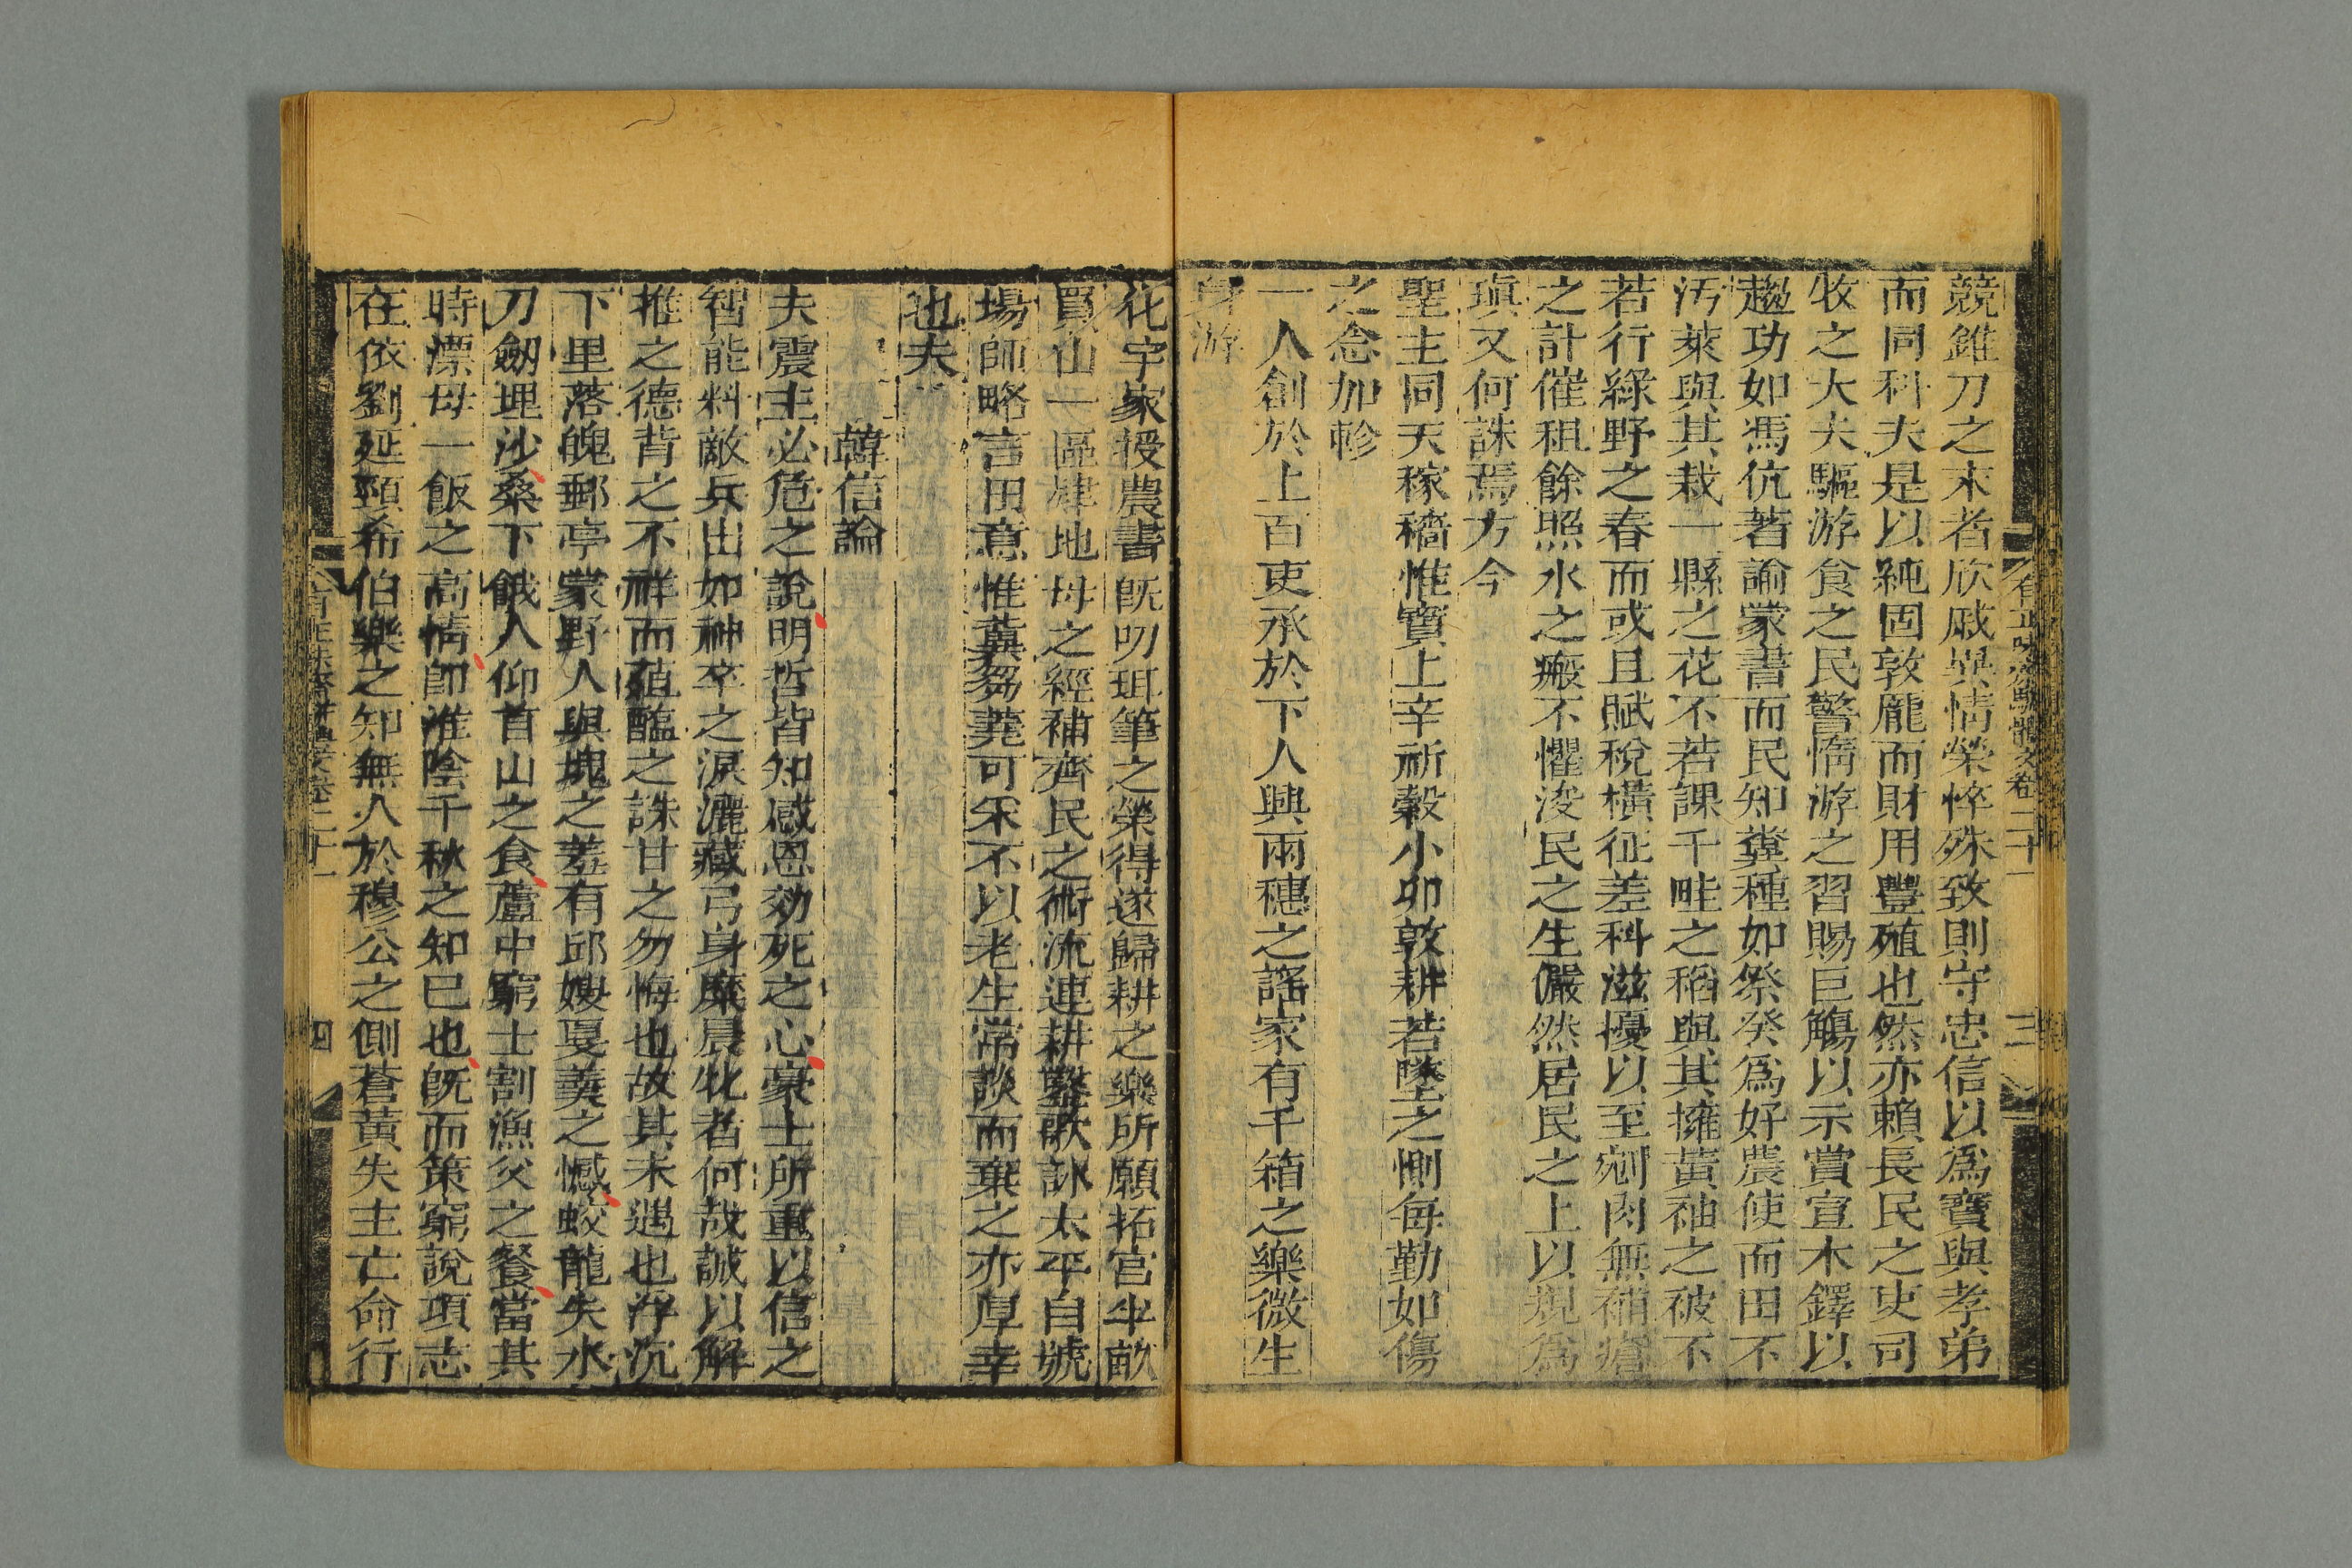 有正味齋駢體文卷二十一
三
競錐刀之末者欣戚異情榮悴殊致則守忠信以爲寶與孝弟
而同科夫是以純固敦龐而財用豐殖也然亦賴長民之吏司
牧之大夫驅游食之民警惰游之習賜巨觴以示賞宣木鐸以
趨功如馮伉著諭蒙書而民知糞種如祭癸爲好農使而田不
汚萊與其栽一縣之花不若課千畦之稻與其擁黃紬之被不
若行綠野之春而或且賦稅橫征差科滋擾以至剜肉無補瘡
之計催租餘照水之瘢不懼浚民之生儼然居民之上以規爲
瑱又何誅焉方今
聖主同天稼穡惟寶上辛祈穀小卯敦耕若墜之惻每勤如傷
之念加軫
一人創於上百吏承於下人興兩穗之謠家有千箱之樂微生
身游
化宇家授農書旣叨珥筆之榮得遂歸耕之樂所願拓官半畝
買山一區肄地母之經補齊民之術流連耕鑿歌詠太平自號
場師略言田意惟冀芻蕘可采不以老生常談而棄之亦厚幸
也夫
韓信論
夫震主必危之說明哲皆知感恩効死之心豪士所重以信之
智能料敵兵出如神卒之淚灑藏弓身糜晨牝者何哉誠以解
推之德背之不祥而殖醢之誅甘之勿悔也故其未遇也浮沉
下里落魄郵亭蒙野人與塊之羞有邱嫂戛羹之憾蛟龍失水
刀劒埋沙桑下餓人仰首山之食蘆中窮士割漁父之餐當其
時漂母一飯之高情卽淮陰千秋之知已也旣而策窮說項志
在依劉延頸希伯樂之知無人於穆公之側蒼黃失主亡命行
有正味齋駢體文卷二十一
四